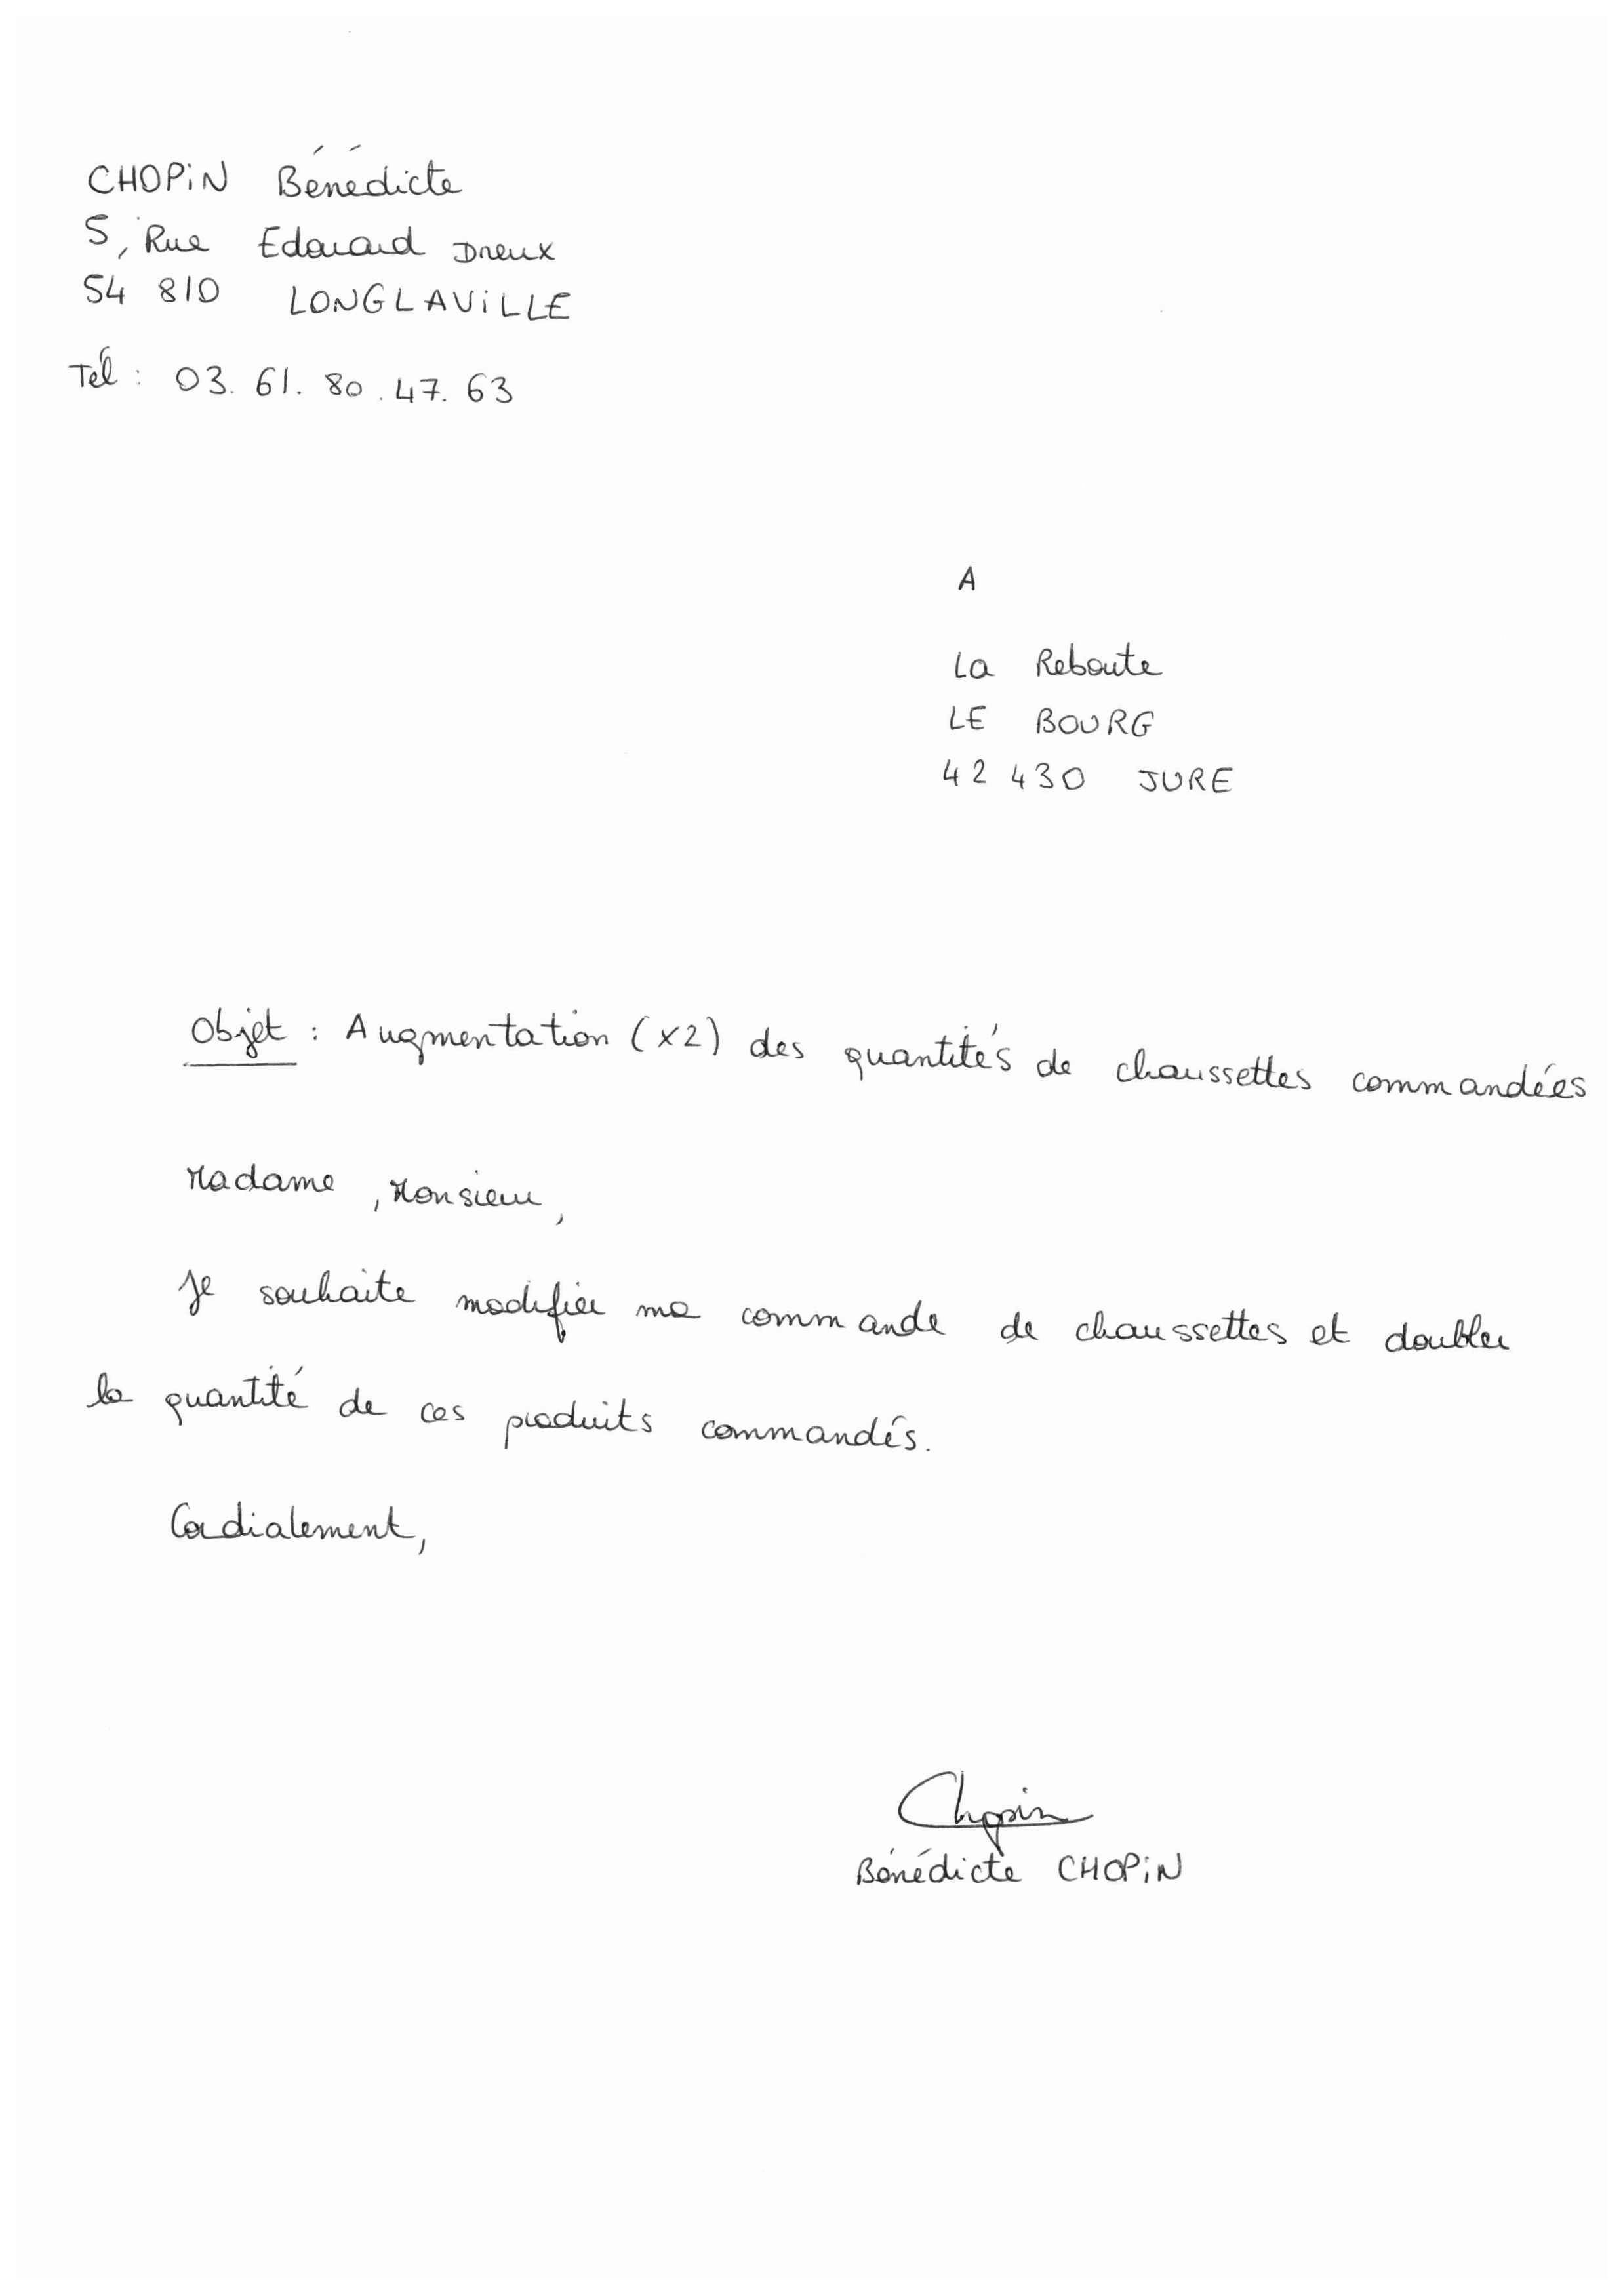 CHOPiN Bénédicte
5, Rue Edouard Dreux
54 810 LONGLAVILLE
Tél : 03. 61. 80. 47. 63
A
La Reboute
LE BOURG
42 430 JURE
Objet : Augmentation (x2) des quantités de chaussettes commandées
Madame, Monsieur,
Je souhaite modifier ma commande de chaussettes et doubler
la quantité de ces produits commandés.
Cordialement,
Chopin
Bénédicte CHOPiN